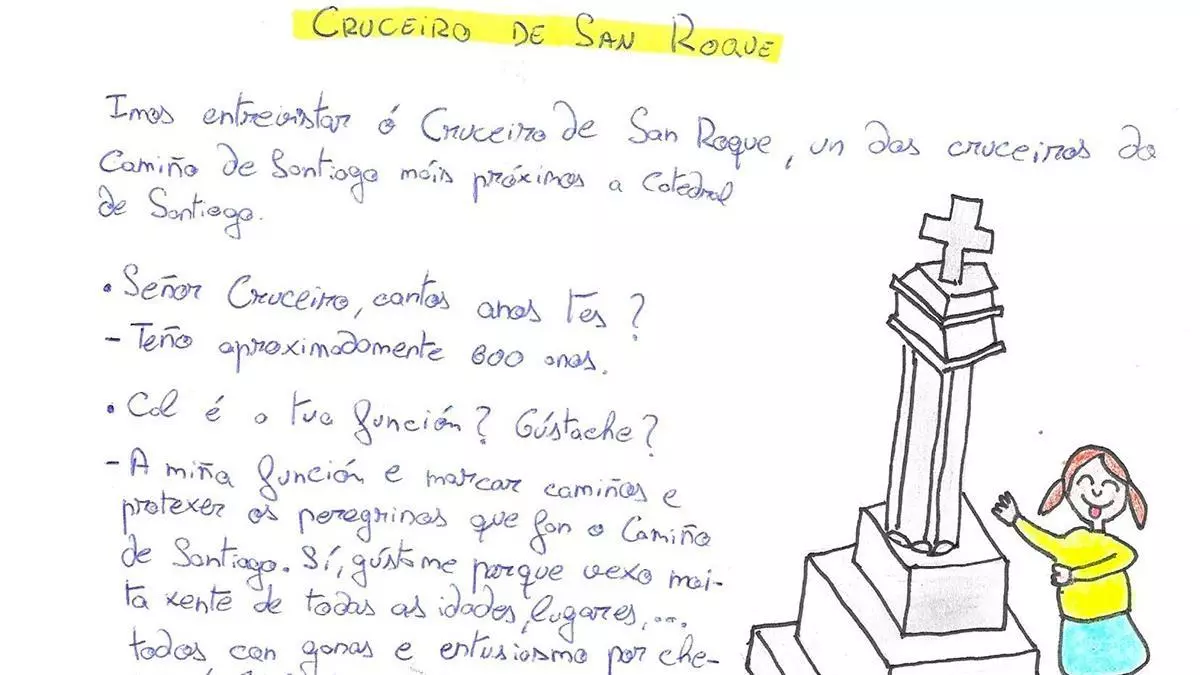 CRUCEIRO DE SAN ROQUE
Imos entrevistar ó Cruceiro de San Roque, un dos cruceiros do
Camiño de Santiago máis próximos a Catedral
de Santiago.
• Señor Cruceiro, cantos anos tes?
- Teño aproximadamente 600 anos.
• Cal é a túa función? Gústache?
- A miña función e marcar camiños e
protexer os peregrinos que fan o Camiño
de Santiago. Sí, gústame porque vexo moi-
ta xente de todas as idades, lugares,...
todos con ganas e entusiasmo por che-